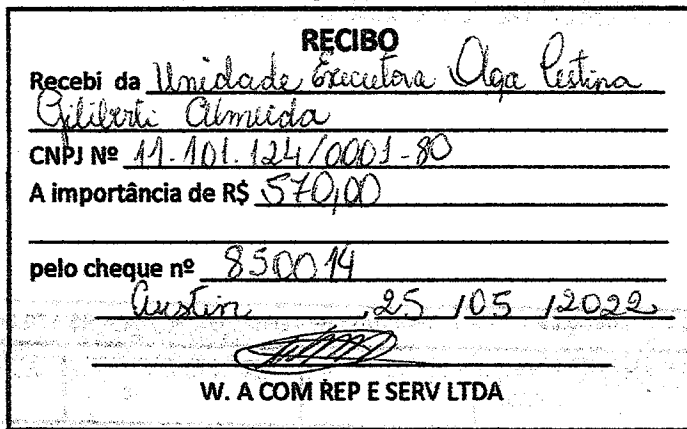 RECIBO
Recebi da Unidade Executora Olga Pestina
Giliberti Almeida
CNPJ Nº 11.101.124/0001-80
A importância de R$ 570,00
pelo cheque nº 850014
Austin, 25 / 05 / 2022
W. A COM REP E SERV LTDA